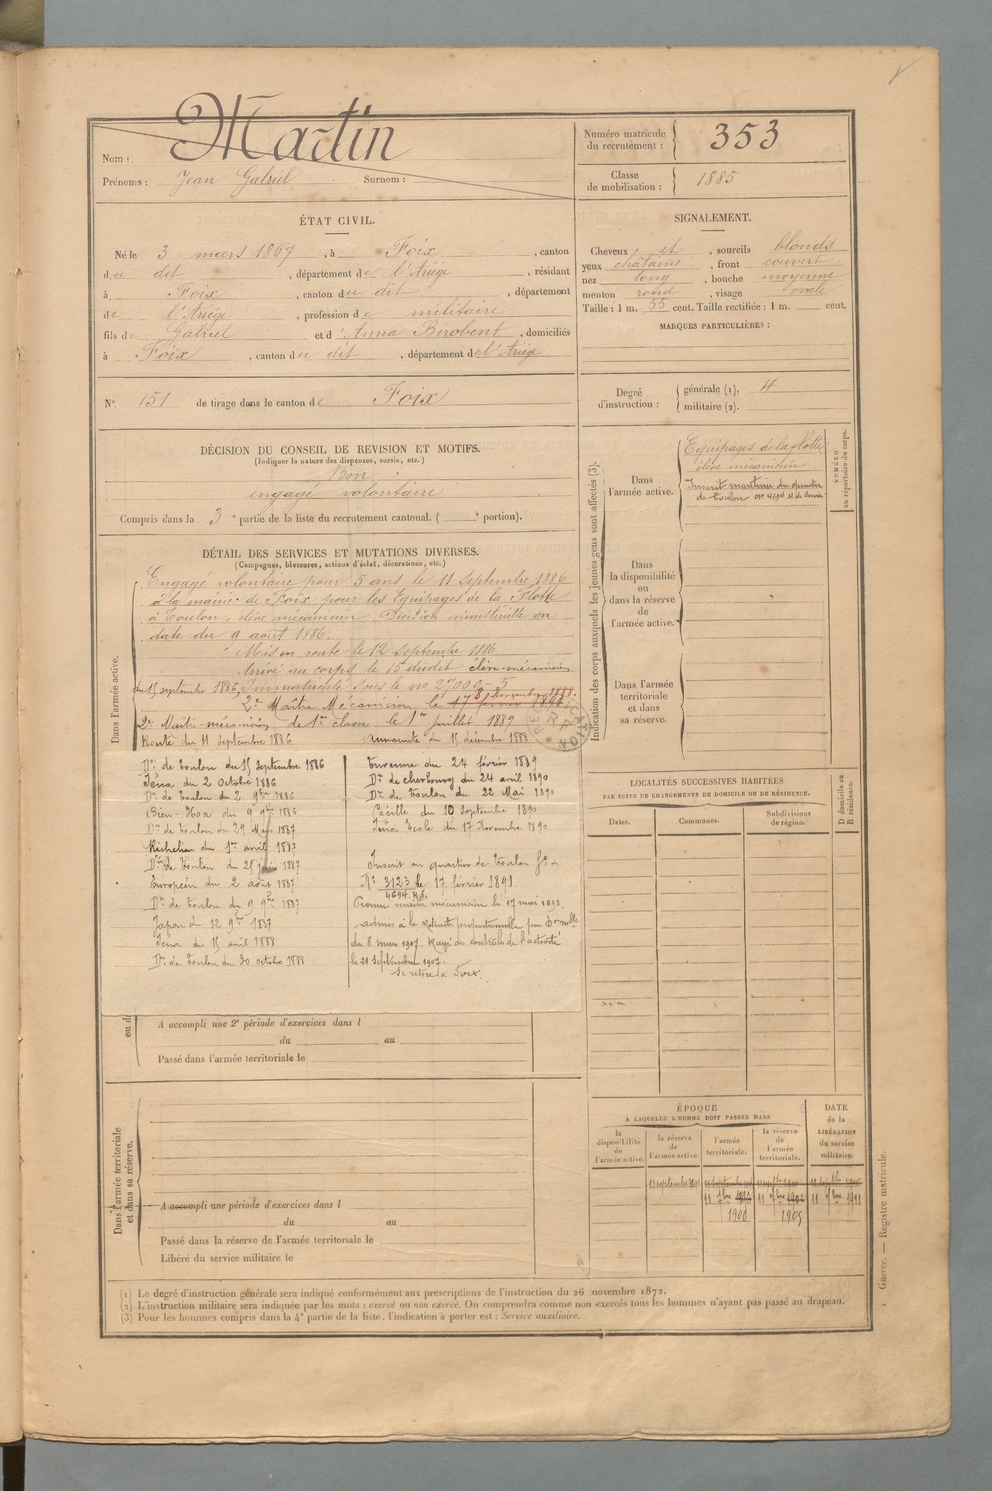 Martin
Nom :
Prénoms : Jean Gabriel Surnom :
Numéro matricule du recrutement : 353
Classe de mobilisation : 1885
ÉTAT CIVIL.
Né le 3 mars 1867, à Foix, canton
du dit, département de l'Ariége, résidant
à Foix, canton du dit, département
de l'Ariége, profession de militaire
fils de Gabriel et d'Anna Birobent, domiciliés
à Foix, canton du dit, département de l'Ariége
N° 151 de tirage dans le canton de Foix
SIGNALEMENT.
Cheveux et, sourcils blonds
yeux chatains, front couvert
nez long, bouche moyenne
menton rond, visage ovale
Taille : 1 m. 55 cent. Taille rectifiée : 1 m. cent.
MARQUES PARTICULIÈRES :
Degré d'instruction : générale (1), 4
militaire (2).
DÉCISION DU CONSEIL DE REVISION ET MOTIFS.
(Indiquer la nature des dispenses, sursis, etc.)
Bon
engagé volontaire
Compris dans la 3e partie de la liste du recrutement cantonal. ( e portion).
DÉTAIL DES SERVICES ET MUTATIONS DIVERSES.
(Campagnes, blessures, actions d'éclat, décorations, etc.)
Dans l'armée active.
Engagé volontaire pour 5 ans le 11 Septembre 1886
à la mairie de Foix pour les Equipages de la Flotte
à Toulon, élève mécanicien. Décision ministérielle en
date du 9 août 1886.
Mis en route le 12 Septembre 1886
Arrivé au corps le 15 dudit élève-mécanicien
du 15 septembre 1886, Immatriculé sous le no 27000-5
2e Maître Mécanicien le 17 février 1888
8 Novembre 1888.
2e Maître-mécanicien de 1re classe le 1er juillet 1889
Route du 11 septembre 1886
Annamite du 15 décembre 1888
Don de Toulon du 15 septembre 1886
Iéna du 2 Octobre 1886
Don de Toulon du 2 9bre 1886
Bien-Hoa du 9 9bre 1886
Don de Toulon du 29 Mars 1887
Richelieu du 1er avril 1887
Don de Toulon du 25 juin 1887
Européen du 2 août 1887
Don de Toulon du 9 9bre 1887
Japon du 12 9bre 1887
Iéna du 15 avril 1888
Don de Toulon du 30 octobre 1888
Turenne du 24 février 1889
Don de Cherbourg du 24 avril 1890
Don de Toulon du 22 Mai 1890
Cécille du 10 Septembre 1890
Iéna Ecole du 17 Novembre 1890
Inscrit au quartier de Toulon
N° 3123 le 17 février 1891.
4694. H.S.
Promu maître mécanicien le 17 mai 1893.
admis à la retraite proportionnelle par
du 8 mars 1907. Rayé des contrôles de l'activité
le 21 Septembre 1907.
Se retire à Foix.
A accompli une 2e période d'exercices dans l
du au
Passé dans l'armée territoriale le
Dans l'armée territoriale et dans sa réserve.
A accompli une période d'exercices dans l
du au
Passé dans la réserve de l'armée territoriale le
Libéré du service militaire le
Indication des corps auxquels les jeunes gens sont affectés (3).
Dans l'armée active.
Equipages de la flotte
élève mécanicien
Inscrit maritime du quartier
de Toulon no 4694
NUMÉRO au répertoire du corps.
Dans la disponibilité ou dans la réserve de l'armée active.
Dans l'armée territoriale et dans sa réserve.
LOCALITÉS SUCCESSIVES HABITÉES
PAR SUITE DE CHANGEMENTS DE DOMICILE OU DE RÉSIDENCE.
Dates.
Communes.
Subdivisions de région.
D domicile ou R résidence.
ÉPOQUE
À LAQUELLE L'HOMME DOIT PASSER DANS
la disponibilité de l'armée active.
la réserve de l'armée active.
l'armée territoriale.
la réserve de l'armée territoriale.
DATE de la LIBÉRATION du service militaire.
11 7bre 11 7bre 11 7bre 1911
1900 1905
(1) Le degré d'instruction générale sera indiqué conformément aux prescriptions de l'instruction du 26 novembre 1872.
(2) L'instruction militaire sera indiquée par les mots : exercé ou non exercé. On comprendra comme non exercés tous les hommes n'ayant pas passé au drapeau.
(3) Pour les hommes compris dans la 4e partie de la liste, l'indication à porter est : Service auxiliaire.
Guerre. — Registre matricule.